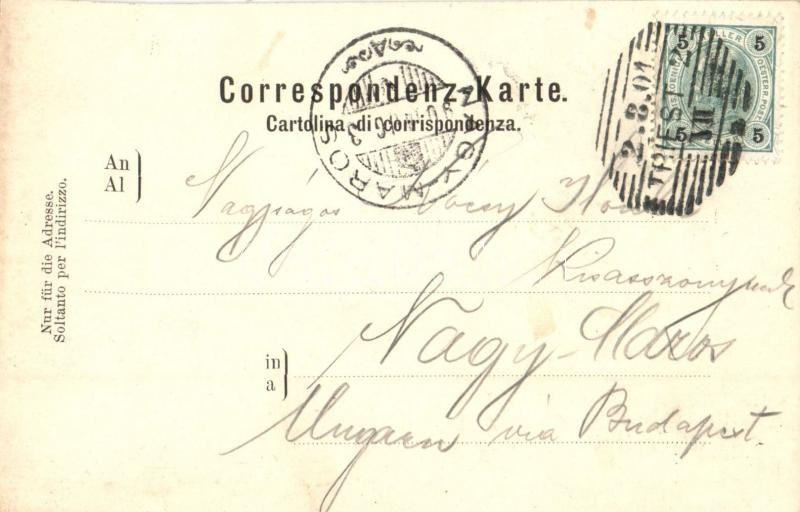 Correspondenz-Karte.
Cartolina di corrispondenza.
An
Al
Nagyságos Vácsy
Kisasszonynak
in
a
Nagy-Maros
Ungarn via Budapest.
Nur für die Adresse.
Soltanto per l'indirizzo.
5 HELLER 5
OESTERR. POST
5 5
2.8.01
TRIEST 2
VIII
NAGY MAROS